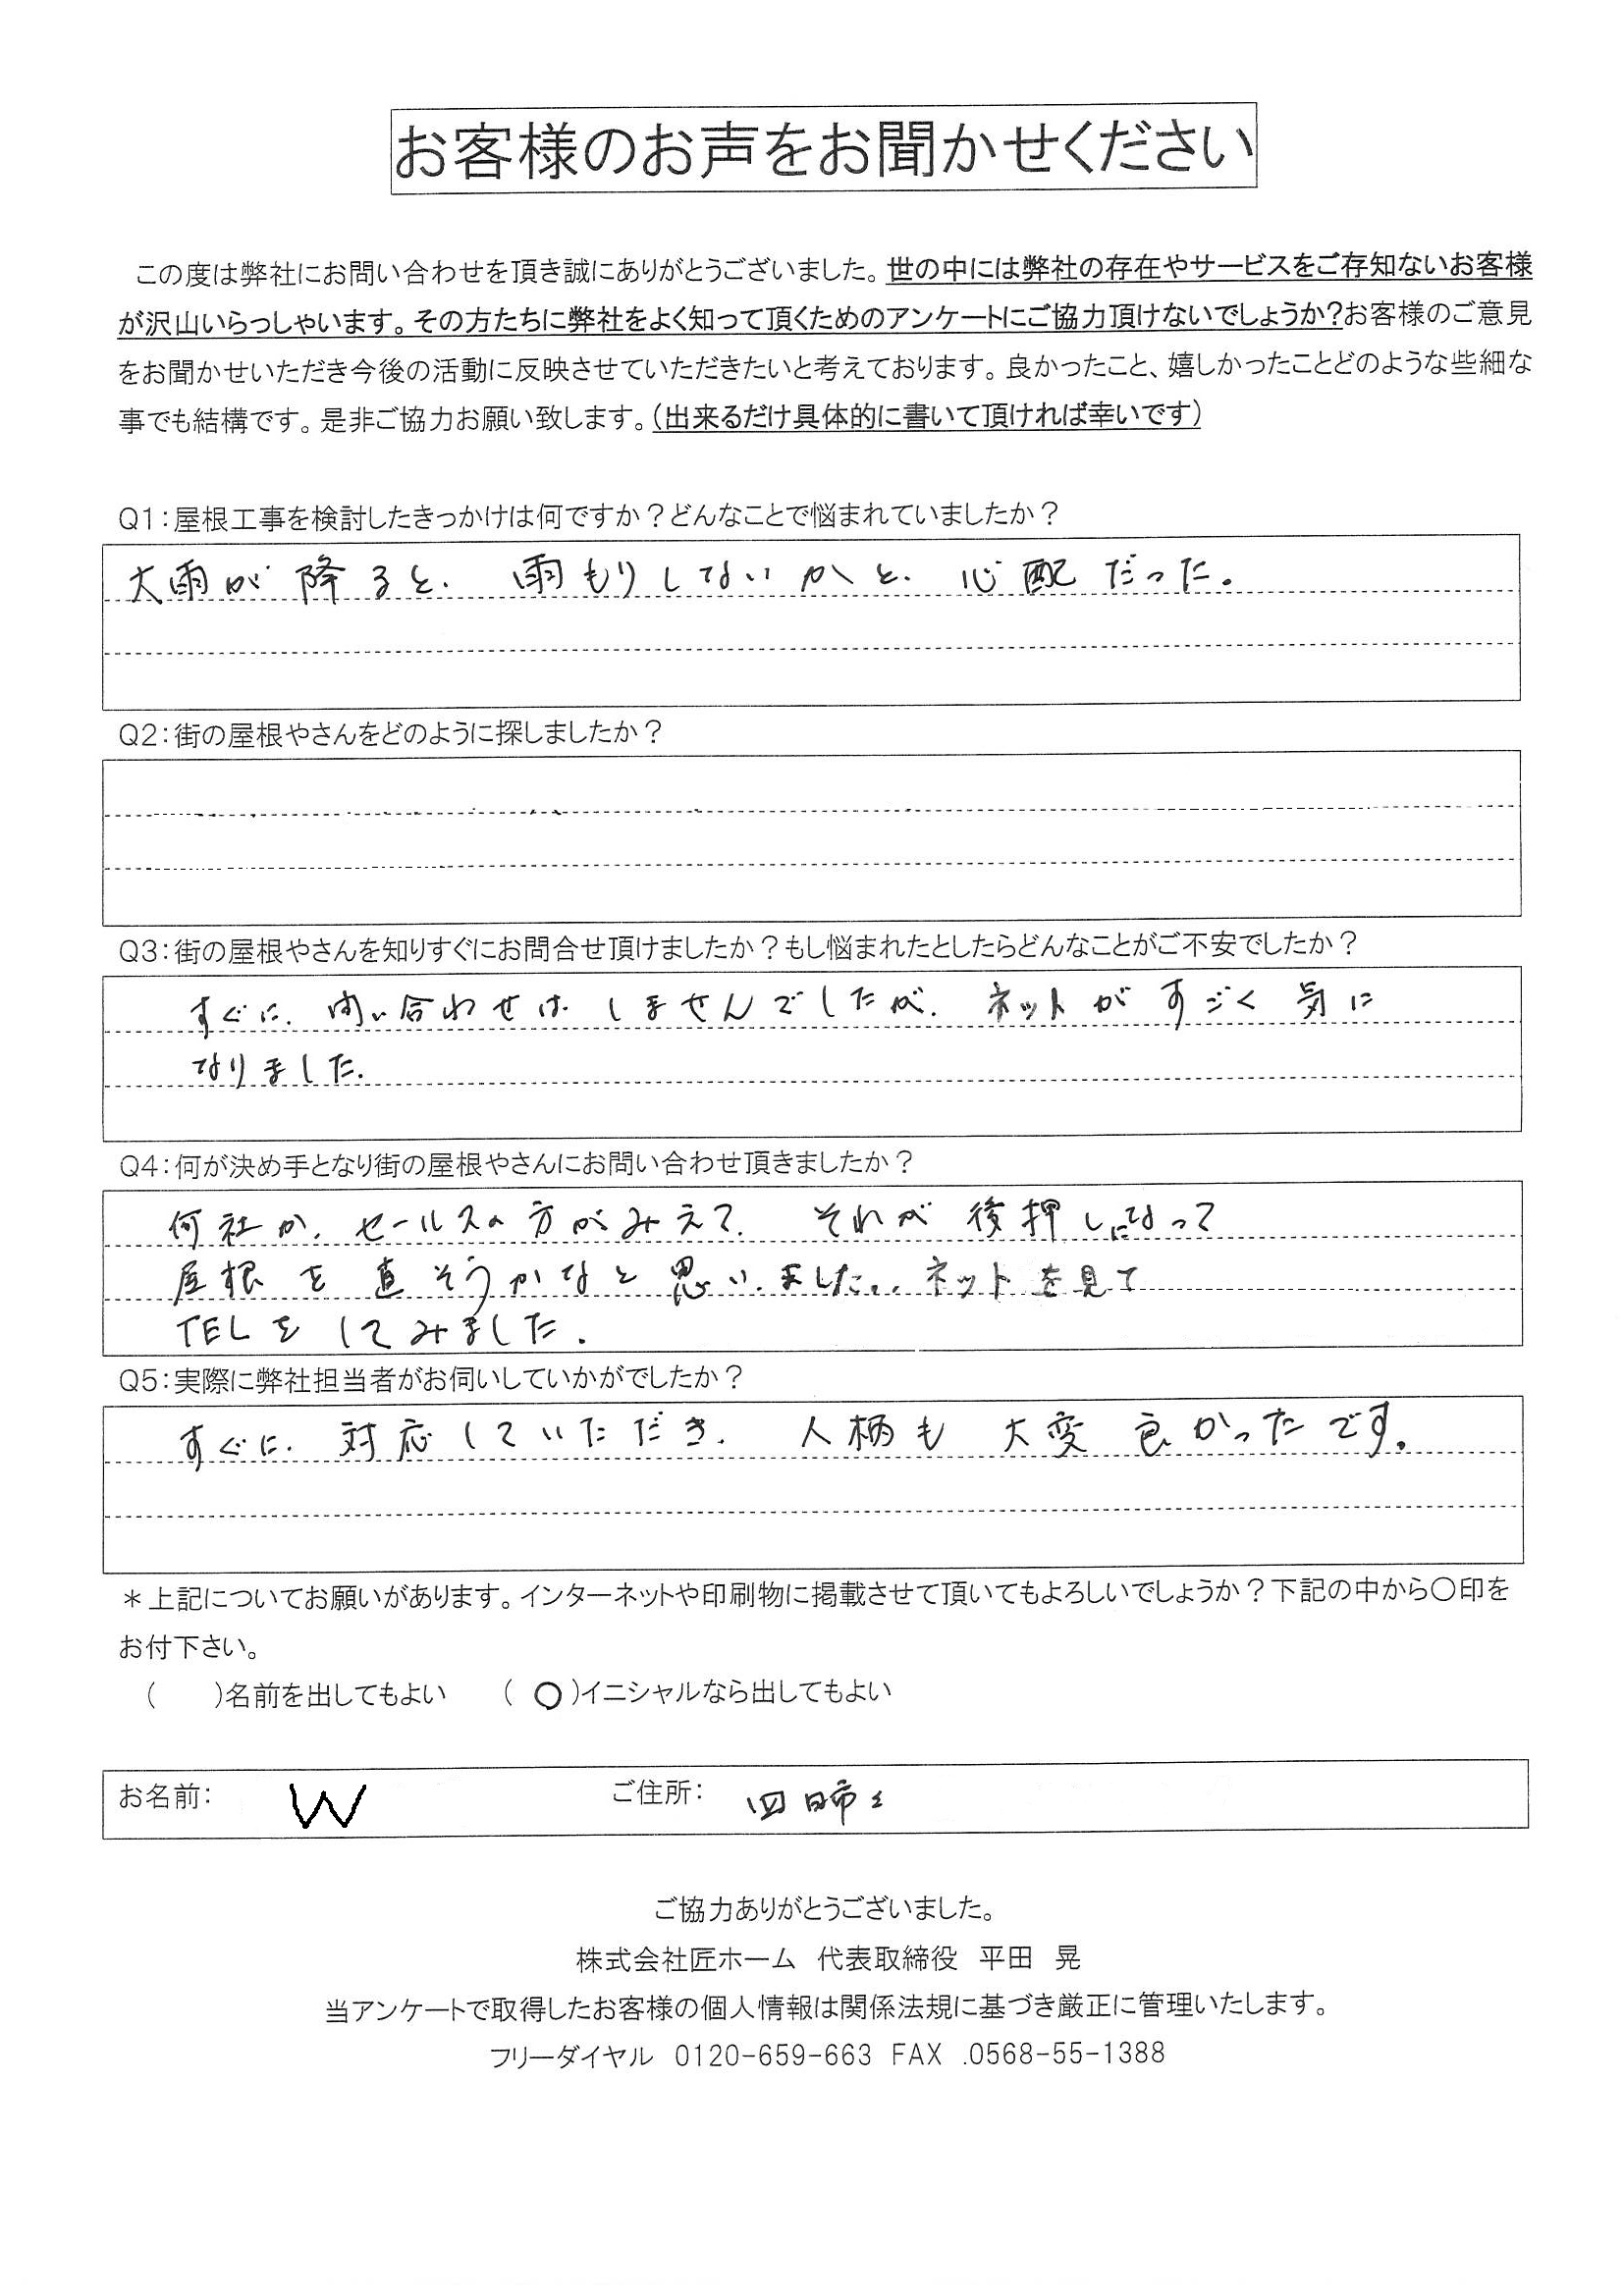 お客様のお声をお聞かせください
この度は弊社にお問い合わせを頂き誠にありがとうございました。世の中には弊社の存在やサービスをご存知ないお客様
が沢山いらっしゃいます。その方たちに弊社をよく知って頂くためのアンケートにご協力頂けないでしょうか?お客様のご意見
をお聞かせいただき今後の活動に反映させていただきたいと考えております。良かったこと、嬉しかったことどのような些細な
事でも結構です。是非ご協力お願い致します。(出来るだけ具体的に書いて頂ければ幸いです)
Q1:屋根工事を検討したきっかけは何ですか?どんなことで悩まれていましたか?
大雨が降ると、雨もりしないかと、心配だった。
Q2:街の屋根やさんをどのように探しましたか?
Q3:街の屋根やさんを知りすぐにお問合せ頂けましたか?もし悩まれたとしたらどんなことがご不安でしたか?
すぐに、問い合わせは しませんでしたが、ネットが すごく 気に
なりました。
Q4:何が決め手となり街の屋根やさんにお問い合わせ頂きましたか?
何社か、セールスの方がみえて、それが後押しになって
屋根を直そうかなと思いました。ネットを見て
TELをしてみました。
Q5:実際に弊社担当者がお伺いしていかがでしたか?
すぐに、対応していただき、人柄も 大変 良かったです。
＊上記についてお願いがあります。インターネットや印刷物に掲載させて頂いてもよろしいでしょうか?下記の中から〇印を
お付下さい。
( )名前を出してもよい ( 〇 )イニシャルなら出してもよい
お名前: W ご住所: 四日市
ご協力ありがとうございました。
株式会社匠ホーム 代表取締役 平田 晃
当アンケートで取得したお客様の個人情報は関係法規に基づき厳正に管理いたします。
フリーダイヤル 0120-659-663 FAX .0568-55-1388